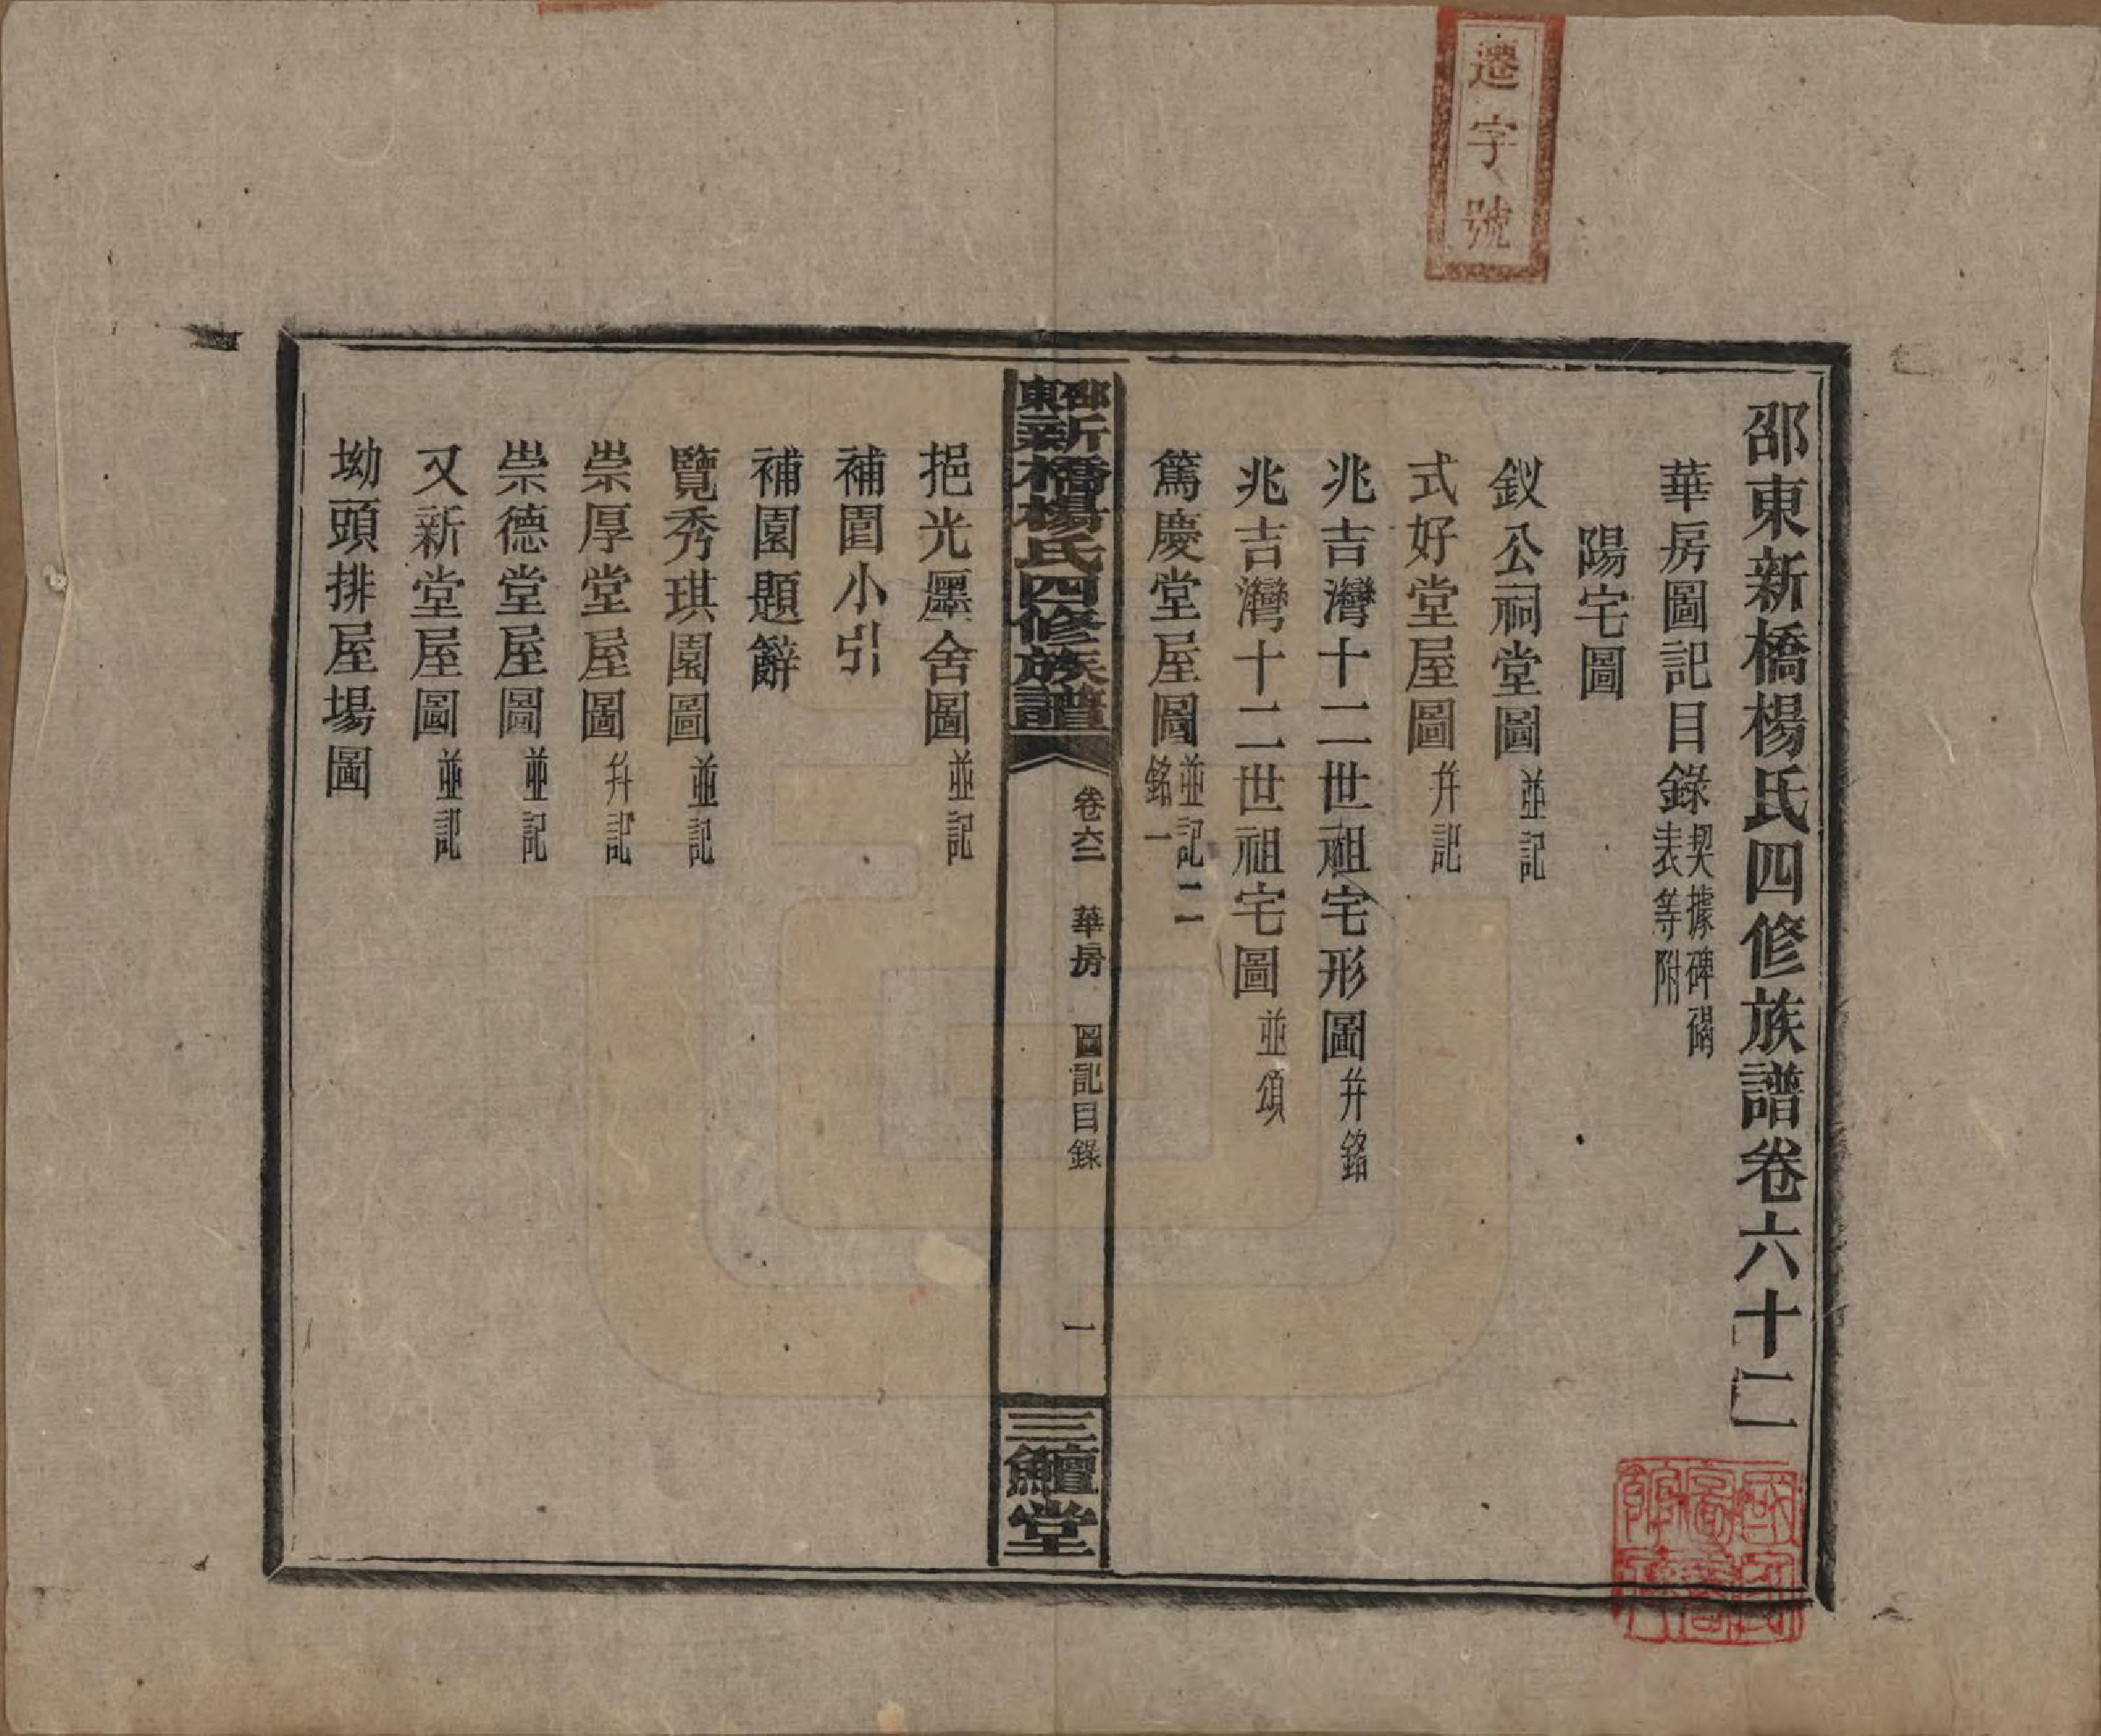 遷字號
邵東新橋楊氏四修族譜卷六十二
華房圖記目錄契據碑碣表等附
陽宅圖
釵公祠堂圖並記
式好堂屋圖并記
兆吉灣十二世祖宅形圖并銘
兆吉灣十二世祖宅圖並頌
篤慶堂屋圖並記二銘一
邵東新橋楊氏四修族譜 卷六二 華房 圖記目錄 一 三鱣堂
挹光墨舍圖並記
補園小引
補園題辭
覽秀琪園圖並記
崇厚堂屋圖并記
崇德堂屋圖並記
又新堂屋圖並記
坳頭排屋場圖